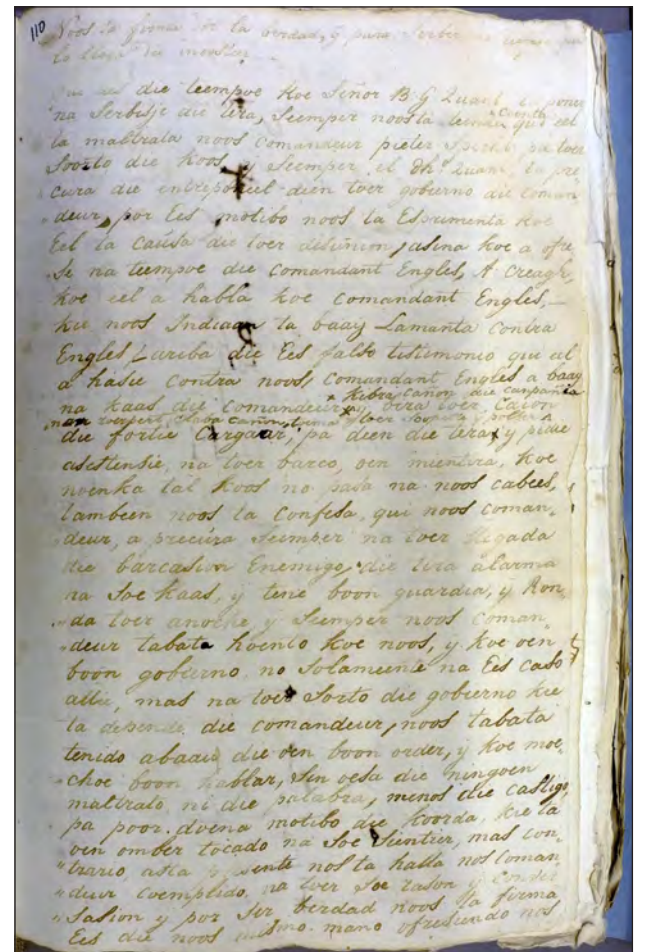 110
Noos ta firma por la berdad, y para serbir
lo llega die menster
die teempoe koe Señor B G Quant
na Serbisje die tera, Seemper noos ta teende Cuenta qui eel
ta maltrata noos Comandeur pieter Specht pa toer
Soorto die Koos, y Seemper el dho Quant ta pro
cura die entreponeel dien toer gobierno die coman
deur, por Ees motibo noos ta Esprimenta koe
Eel ta Causa die toer desunion, asina koe a ofre
se na teempoe die Comandant Engles, A Creagh,
koe eel a habla koe Comandant Engles,
kie noos Indiaan ta baay Lamanta Contra
Engles, ariba die Ees falso tistimonio que el
a hasie contra noos, Comandant Engles a baay
na Kaas die Comandeur, x Kibra Cañon die Canpañia
y bira toer Cañon
toer
die fortie Cargaar, pa deen die tera, y pidie
asestensie, na toer barco, oen mientira, koe
noenka tal koos no pasa na noos cabees,
tambeen noos ta Confesa, qui noos Coman,
deur, a precura Seemper na toer llegada
die barcasion Enemigo, die tira alarma
na Soe Kaas, y tene boon guardia, y Ron,
da toer anoche, y Seemper noos Coman,
deur tabata hoento koe noos, y koe oen
boon gobierno, no Solameente na Ees caso
, mas na toer Sorto die gobierno kie
ta depende die comandeur, noos tabata
tenido abaau die oen boon order, y koe moe,
choe boon hablar, Sin oesa die ningoen
maltrato, ni die palabra, menos die Castigo,
pa poor duena motibo die koorda, kie ta
oen omber tocado na Soe Sientier, mas con
trario, asta presente nos ta halla nos Coman,
deur Coemplido na toer Soe rason y
Sasion y por Ser berdad noos ta firma
Ees die noos mismo mano ofresiendo nos